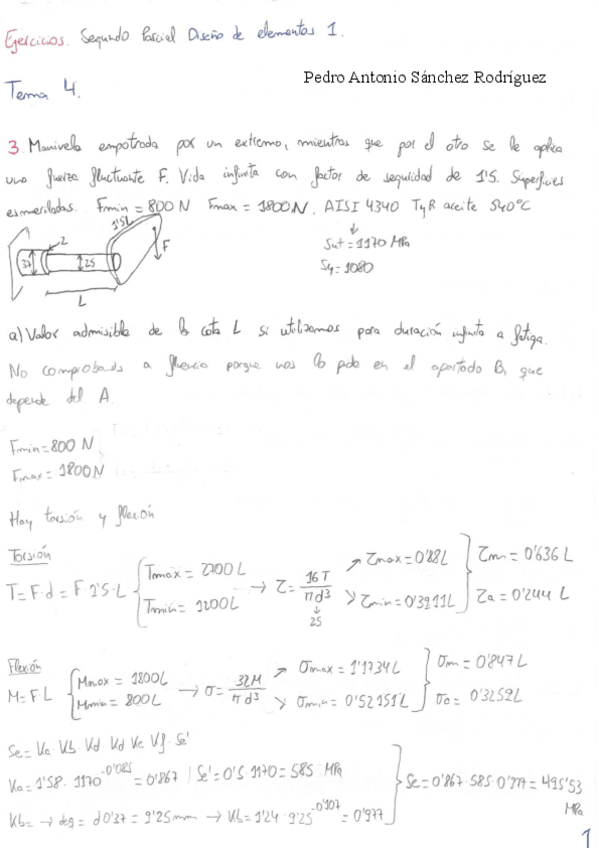 Ejercicios. Segundo Parcial Diseño de elementos 1.
Pedro Antonio Sánchez Rodríguez
Tema 4.
3. Manivela empotrada por un extremo, mientras que por el otro se le aplica
una fuerza fluctuante F. Vida infinita con factor de seguridad de 1'5. Superficies
esmeriladas. Fmin = 800 N Fmax = 1800 N. AISI 4340 TyR aceite 540°C
↓
Sut = 1170 MPa
Sy = 1080
37
2
25
1'5L
F
L
a) Valor admisible de la cota L si utilizamos para duración infinita a fatiga.
No comprobads a fluencia porque nos lo pide en el apartado B, que
depende del A.
Fmin = 800 N
Fmax = 1800 N
Hay torsión y flexión
Torsión
T = F·d = F·1'5·L { Tmax = 2700 L Tmin = 1200 L → τ = 16T / πd³ ↓ 25 ↗ τmax = 0'88L ↘ τmin = 0'3911L } τm = 0'636 L τa = 0'244 L
Flexión
M = F·L { Mmax = 1800L Mmin = 800L → σ = 32M / πd³ ↗ σmax = 1'1734L ↘ σmin = 0'52151L } σm = 0'847L σa = 0'3259L
Se = Ka · Kb · Kd · Kd Ke Kf · Se'
Ka = 1'58 · 1170^-0'085 = 0'867 | Se' = 0'5 · 1170 = 585 MPa
Kb = → deq = d 0'37 = 9'25 mm → Kb = 1'24 · 9'25^-0'107 = 0'977
} Se = 0'867 · 585 · 0'977 = 495'53
MPa
1